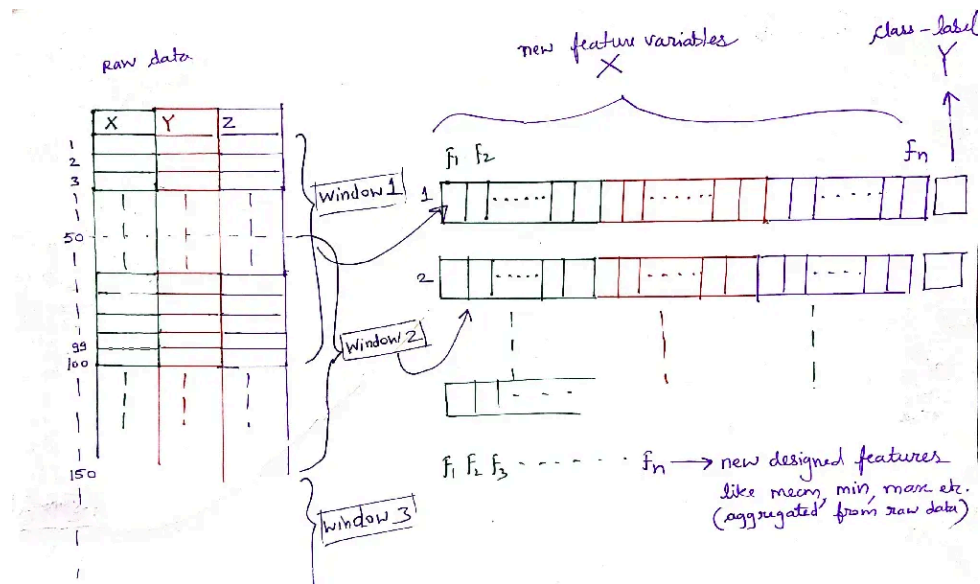 Raw data
new feature variables
X
class-label
Y
X Y Z
1
2
3
50
99
100
150
window 1
window 2
window 3
f1 f2
fn
1
2
f1 f2 f3 - - - - - - fn → new designed features
like mean, min, max etc.
(aggregated from raw data)